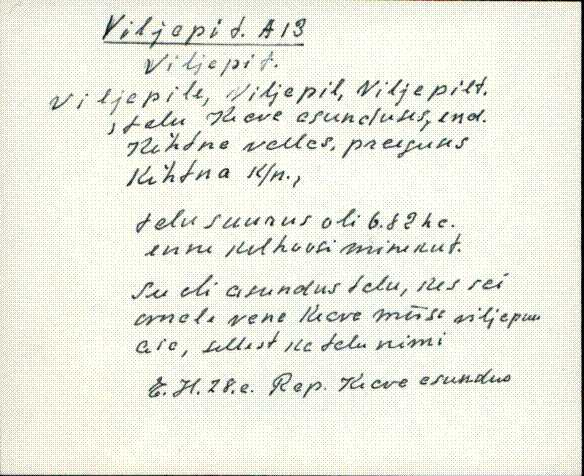 Viljapit. A13
Viljapit.
Viljapile, Viljapil, Viljapilt.
, talu Keava asunduses, end.
Kehtna vallas, praeguses
Kehtna K/n.,
talu suurus oli 6.82 ha.
enne kolhoosi minekut.
See oli asundus talu, kes sai
omale vana Keava mõisa viljapuu
aia, sellest ka talu nimi
E. H. 28.a. Rap. Keava asundus